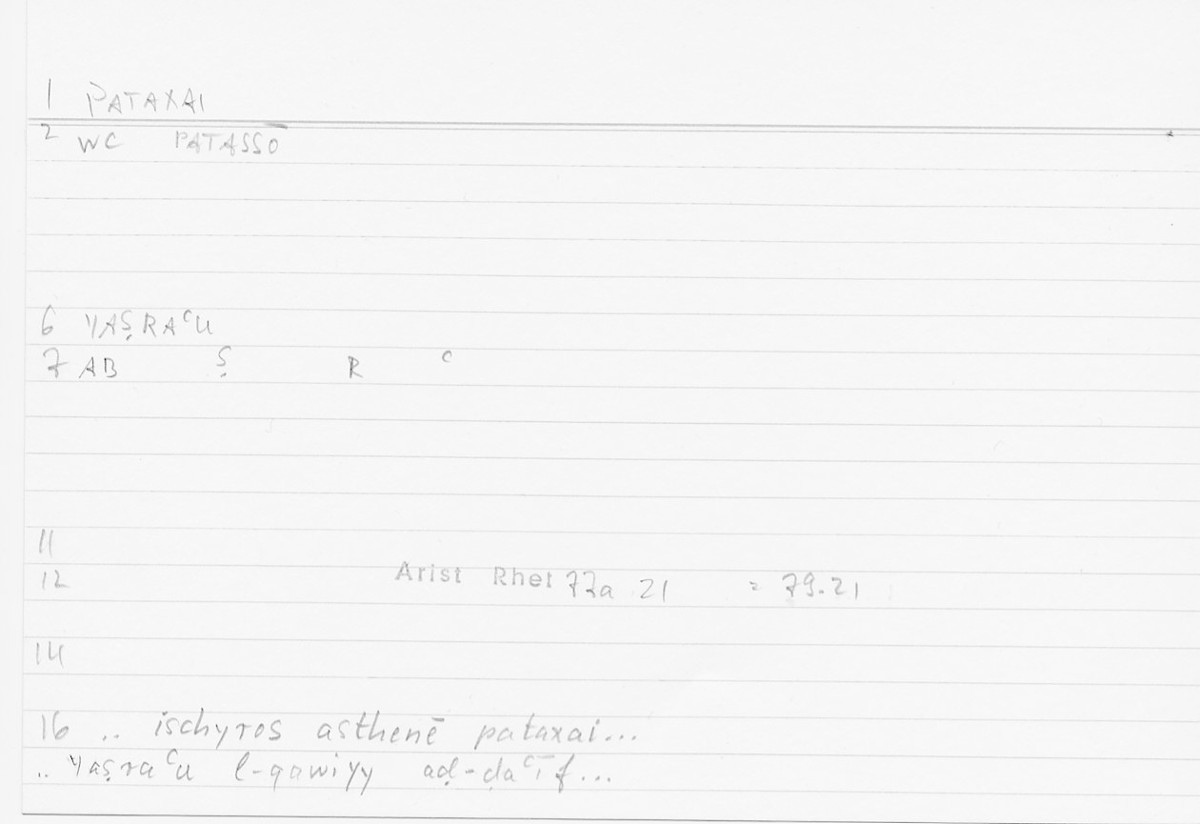 1 PATAXAI
2 WC PATASSŌ
6 YAṢRAᶜU
7 AB Ṣ R ᶜ
11
12 Arist Rhet 72a 21 = 79.21
14
16 .. ischyros asthenē pataxai...
.. yaṣraᶜu l-qawiyy aḍ-ḍaᶜīf...